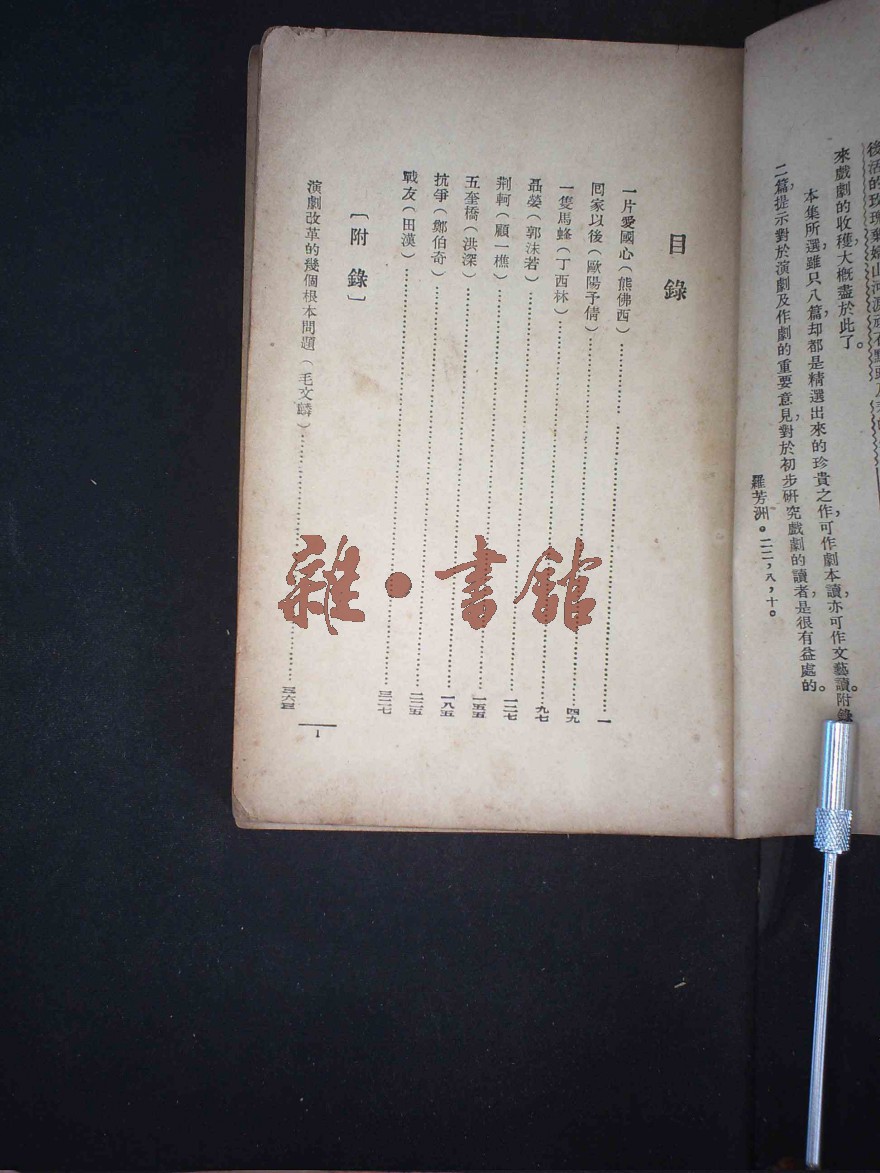 後活的玫瑰棄嬌山河淚
來戲劇的收穫大概盡於此了。
本集所選雖只八篇，却都是精選出來的珍貴之作，可作劇本讀，亦可作文藝讀。附錄
二篇，提示對於演劇及作劇的重要意見，對於初步研究戲劇的讀者，是很有益處的。
羅芳洲。二二，八，十。
目錄
一片愛國心（熊佛西）……一
囘家以後（歐陽予倩）……四九
一隻馬蜂（丁西林）……九七
聶嫈（郭沫若）……一二七
荆軻（顧一樵）……一五五
五奎橋（洪深）……一八五
抗爭（鄭伯奇）……二三五
戰友（田漢）……三二七
［附錄］
演劇改革的幾個根本問題（毛文麟）……三六三
1
雜·書館